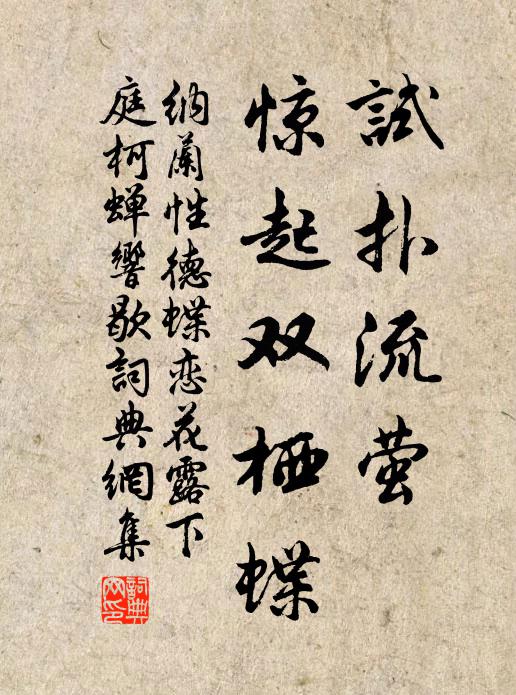 試扑流萤
惊起双栖蝶
纳蘭性德蝶恋花露下
庭柯蝉響歇詞典網集
詞典网印